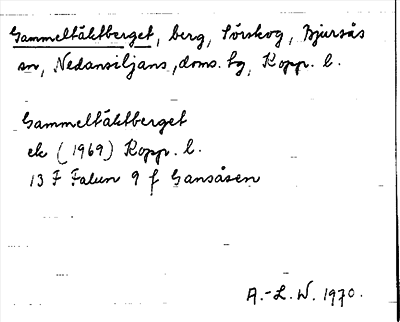 Gammeltäktberget, berg, Sörskog, Bjursås
sn, Nedansiljans, doms. tg, Kopp. l.
Gammeltäktberget
ek (1969) Kopp. l.
13 F Falun 9 f Gansåsen
A.-L. W. 1970.